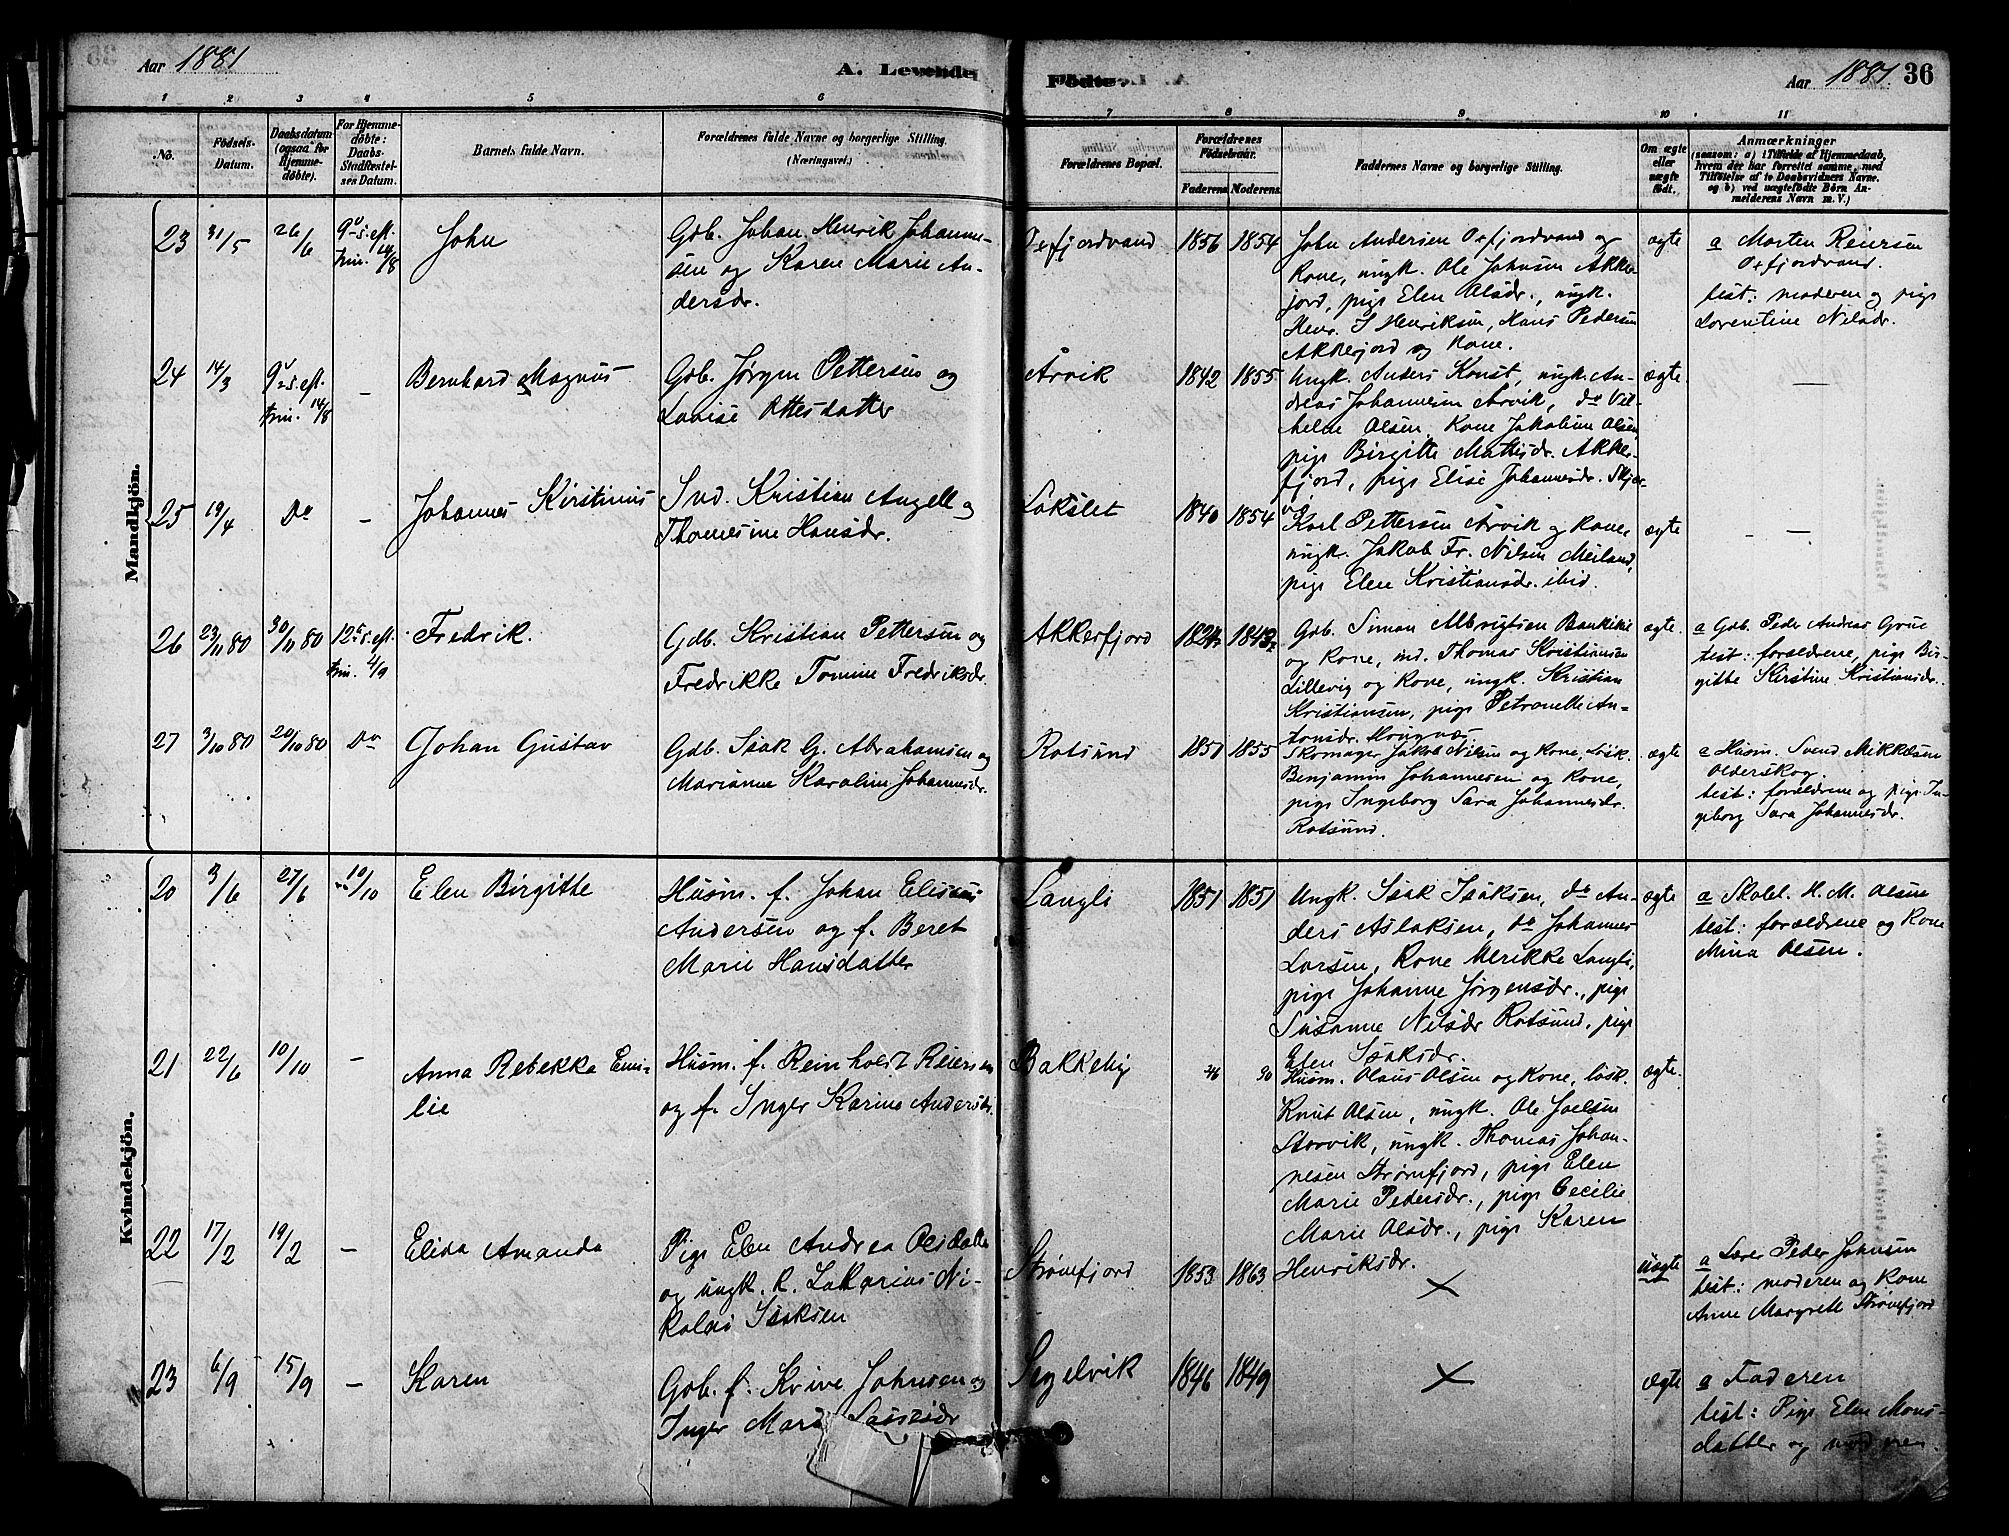 Aar 1881
A. Levende Fødte.
Aar 1881. 36
1 2 3 4 5 6 7 8 9 10 11
No.
Fødsels-
Datum.
Daabsdatum
(ogsaa for
Hjemme-
døbte).
For Hjemme-
døbte:
Daabs-
Stadfæstel-
ses Datum.
Barnets fulde Navn.
Forældrenes fulde Navne og borgerlige Stilling.
(Næringsvei.)
Forældrenes Bopæl.
Forældrenes
Fødselsaar.
Faderens. Moderens.
Faddernes Navne og borgerlige Stilling.
Om ægte
eller
uægte
født.
Anmærkninger
(saasom: a) i Tilfælde af Hjemmedaab,
hvem der har forrettet samme, med
Tilføielse af to Daabsvidners Navne.
og b) ved uægtefødte Børn An-
melderens Navn m. V.)
Mandkjön.
23 31/5 26/6 9 s. eft.
trin. 14/8
John
Gdb. Johan Henrik Johanne-
sen og Karen Marie An-
dersdr.
Oxfjordvand 1856 1854
John Andersen Oxfjordvand og
Kone, ungk. Ole Johnsen Akker-
fjord, pige Elen Olsdr., ungk.
Henr. I Henriksen, Hans Pedersen
Akkerfjord og Kone.
ægte
a Morten Reiersen
Oxfjordvand.
test: moderen og pige
Lorentine Nilsdr.
24 14/3 9 s. eft.
trin. 14/8 –
Bernhard Magnus
Gdb. Jørgen Pettersen og
Lovise Ottesdatter
Årvik 1842 1855
Ungk. Anders Konst, ungk. An-
dreas Johannesen Årvik, do Vil-
helm Olsen, Kone Jakobine Olsen
pige Birgitte Mathisdr. Akker-
fjord, pige Elise Johannesdr. Skjer-
vø
ægte. –
25 19/4 Do –
Johannes Kirstinus
Ind. Kristian Angell og
Thomesine Hansdr.
Lökslet 1840 1854
Karl Pettersen Årvik og Kone,
ungk. Jakob Fr. Nilsen Meiland,
pige Elen Kristiansdr. ibid.
ægte –
26 23/11 80 30/11 80 12 s. eft.
trin. 4/9
Fredrik.
Gdb. Kristian Pettersen og
Fredrikke Tomine Fredriksdr.
Akkerfjord 1824 1843
Gdb. Simon Albrigtsen Bankekie
og Kone, ind. Thomas Kristiansen
Lillevig og Kone, ungk. Kristian
Kristiansen, pige Petronelle An-
tonsdr. Hougnæs
ægte.
a Gdb. Peder Andreas Grue
test: forældrene, pige Bir-
gitte Kirstine Kristiansdr.
27 3/10 80 20/10 80 Do
Johan Gustav
Gdb. Isak G. Abrahamsen og
Marianne Karoline Johannesdr.
Rotsund 1851 1855
Skomager Jakob Nilsen og Kone, løsk.
Benjamin Johannesen og Kone,
pige Ingeborg Sara Johannesdr.
Rotsund.
ægte
a Husm. Svend Mikkelsen
Olderskog.
test: forældrene og pige In-
geborg Sara Johannesdr.
Kvindekjön.
20 3/6 27/6 10/10
Elen Birgitte
Husm. f. Johan Eliseus
Andersen og f. Beret
Marie Hansdatter
Langli 1851 1851
Ungk. Isak Isaksen, do An-
ders Aslaksen, do Johannes
Larsen, Kone Ulrikke Langli,
pige Johanne Jørgensdr., pige
Susanne Nilsdr Rotsund, pige
Elen Isaksdr.
ægte
a Skoll. H. M. Olsen
test: forældrene og Kone
Mina Olsen.
21 22/6 10/10 –
Anna Rebekka Emi-
lie
Husm. f. Reinholdt Reiersen
og f. Inger Karine Andersdr.
Bakkeby 46 30
Husm. Olaus Olsen og Kone, løsk.
Knut Olsen, ungk. Ole Joelsen
Storvik, ungk. Thomas Johan-
nesen Strømfjord, pige Elen
Marie Pedersdr., pige Cecilie
Marie Olsdr., pige Karen
Henriksdr.
ægte.
22 17/2 19/2 –
Elida Amanda
Pige Elen Andrea Olsdatter
og ungk. K. Zakarias Ni-
kolai Isaksen
Strømfjord 1853 1863
X
uægte
a Lærer Peder Johnsen
test: moderen og Kone
Anne Margreth Strømfjord
23 6/9 15/9 –
Karen
Gdb. f. Kvive Johnsen og
Inger Marie Lassesdr
Segelvik 1846 1849
X
ægte
a Faderen
test: Pige Elen Mons-
datter og moderen.